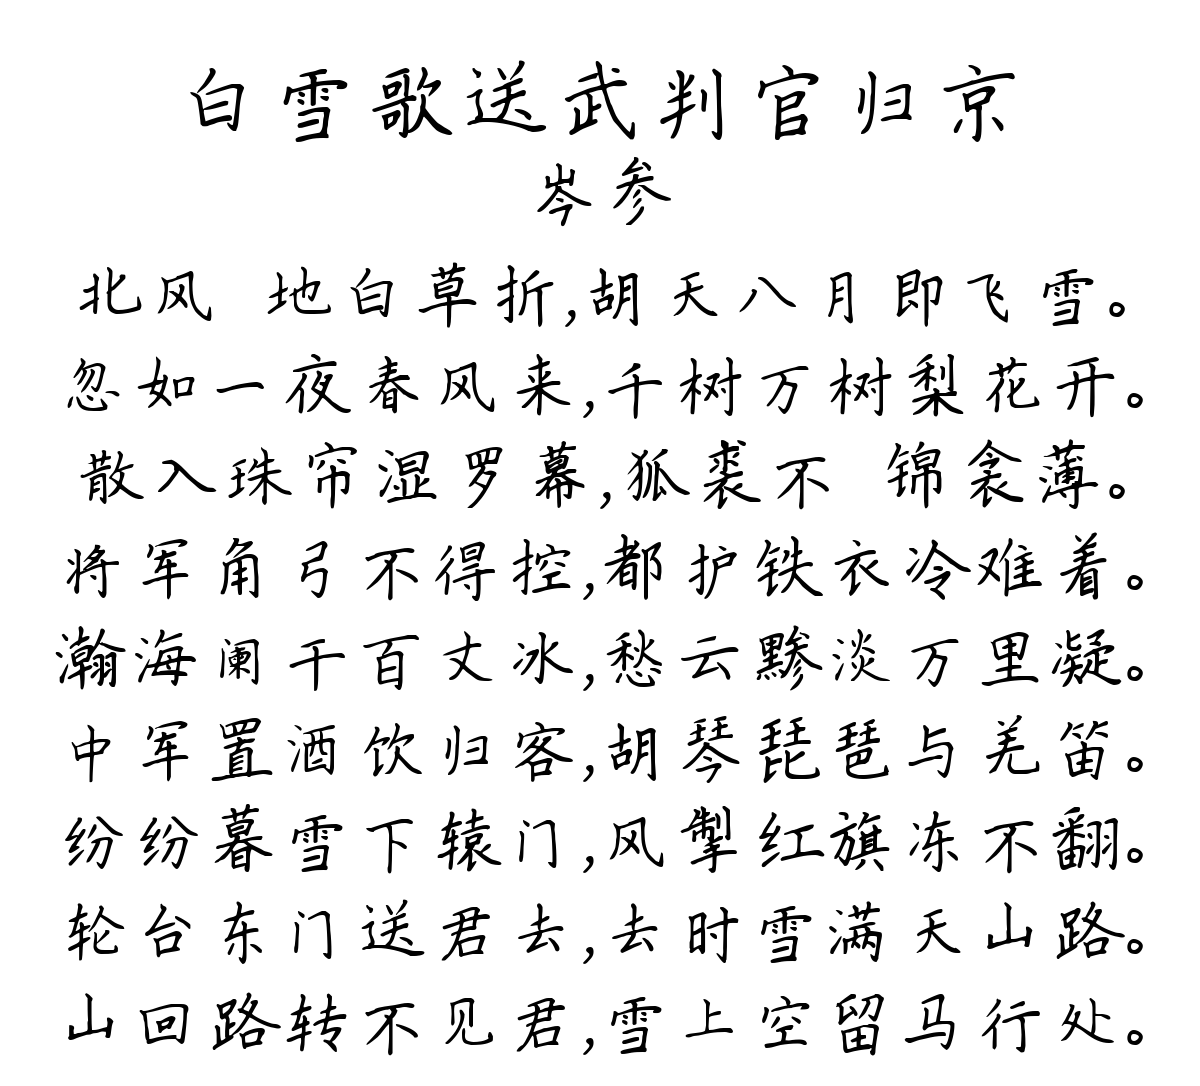 白雪歌送武判官归京
岑参
北风 地白草折,胡天八月即飞雪。
忽如一夜春风来,千树万树梨花开。
散入珠帘湿罗幕,狐裘不 锦衾薄。
将军角弓不得控,都护铁衣冷难着。
瀚海阑干百丈冰,愁云黪淡万里凝。
中军置酒饮归客,胡琴琵琶与羌笛。
纷纷暮雪下辕门,风掣红旗冻不翻。
轮台东门送君去,去时雪满天山路。
山回路转不见君,雪上空留马行处。